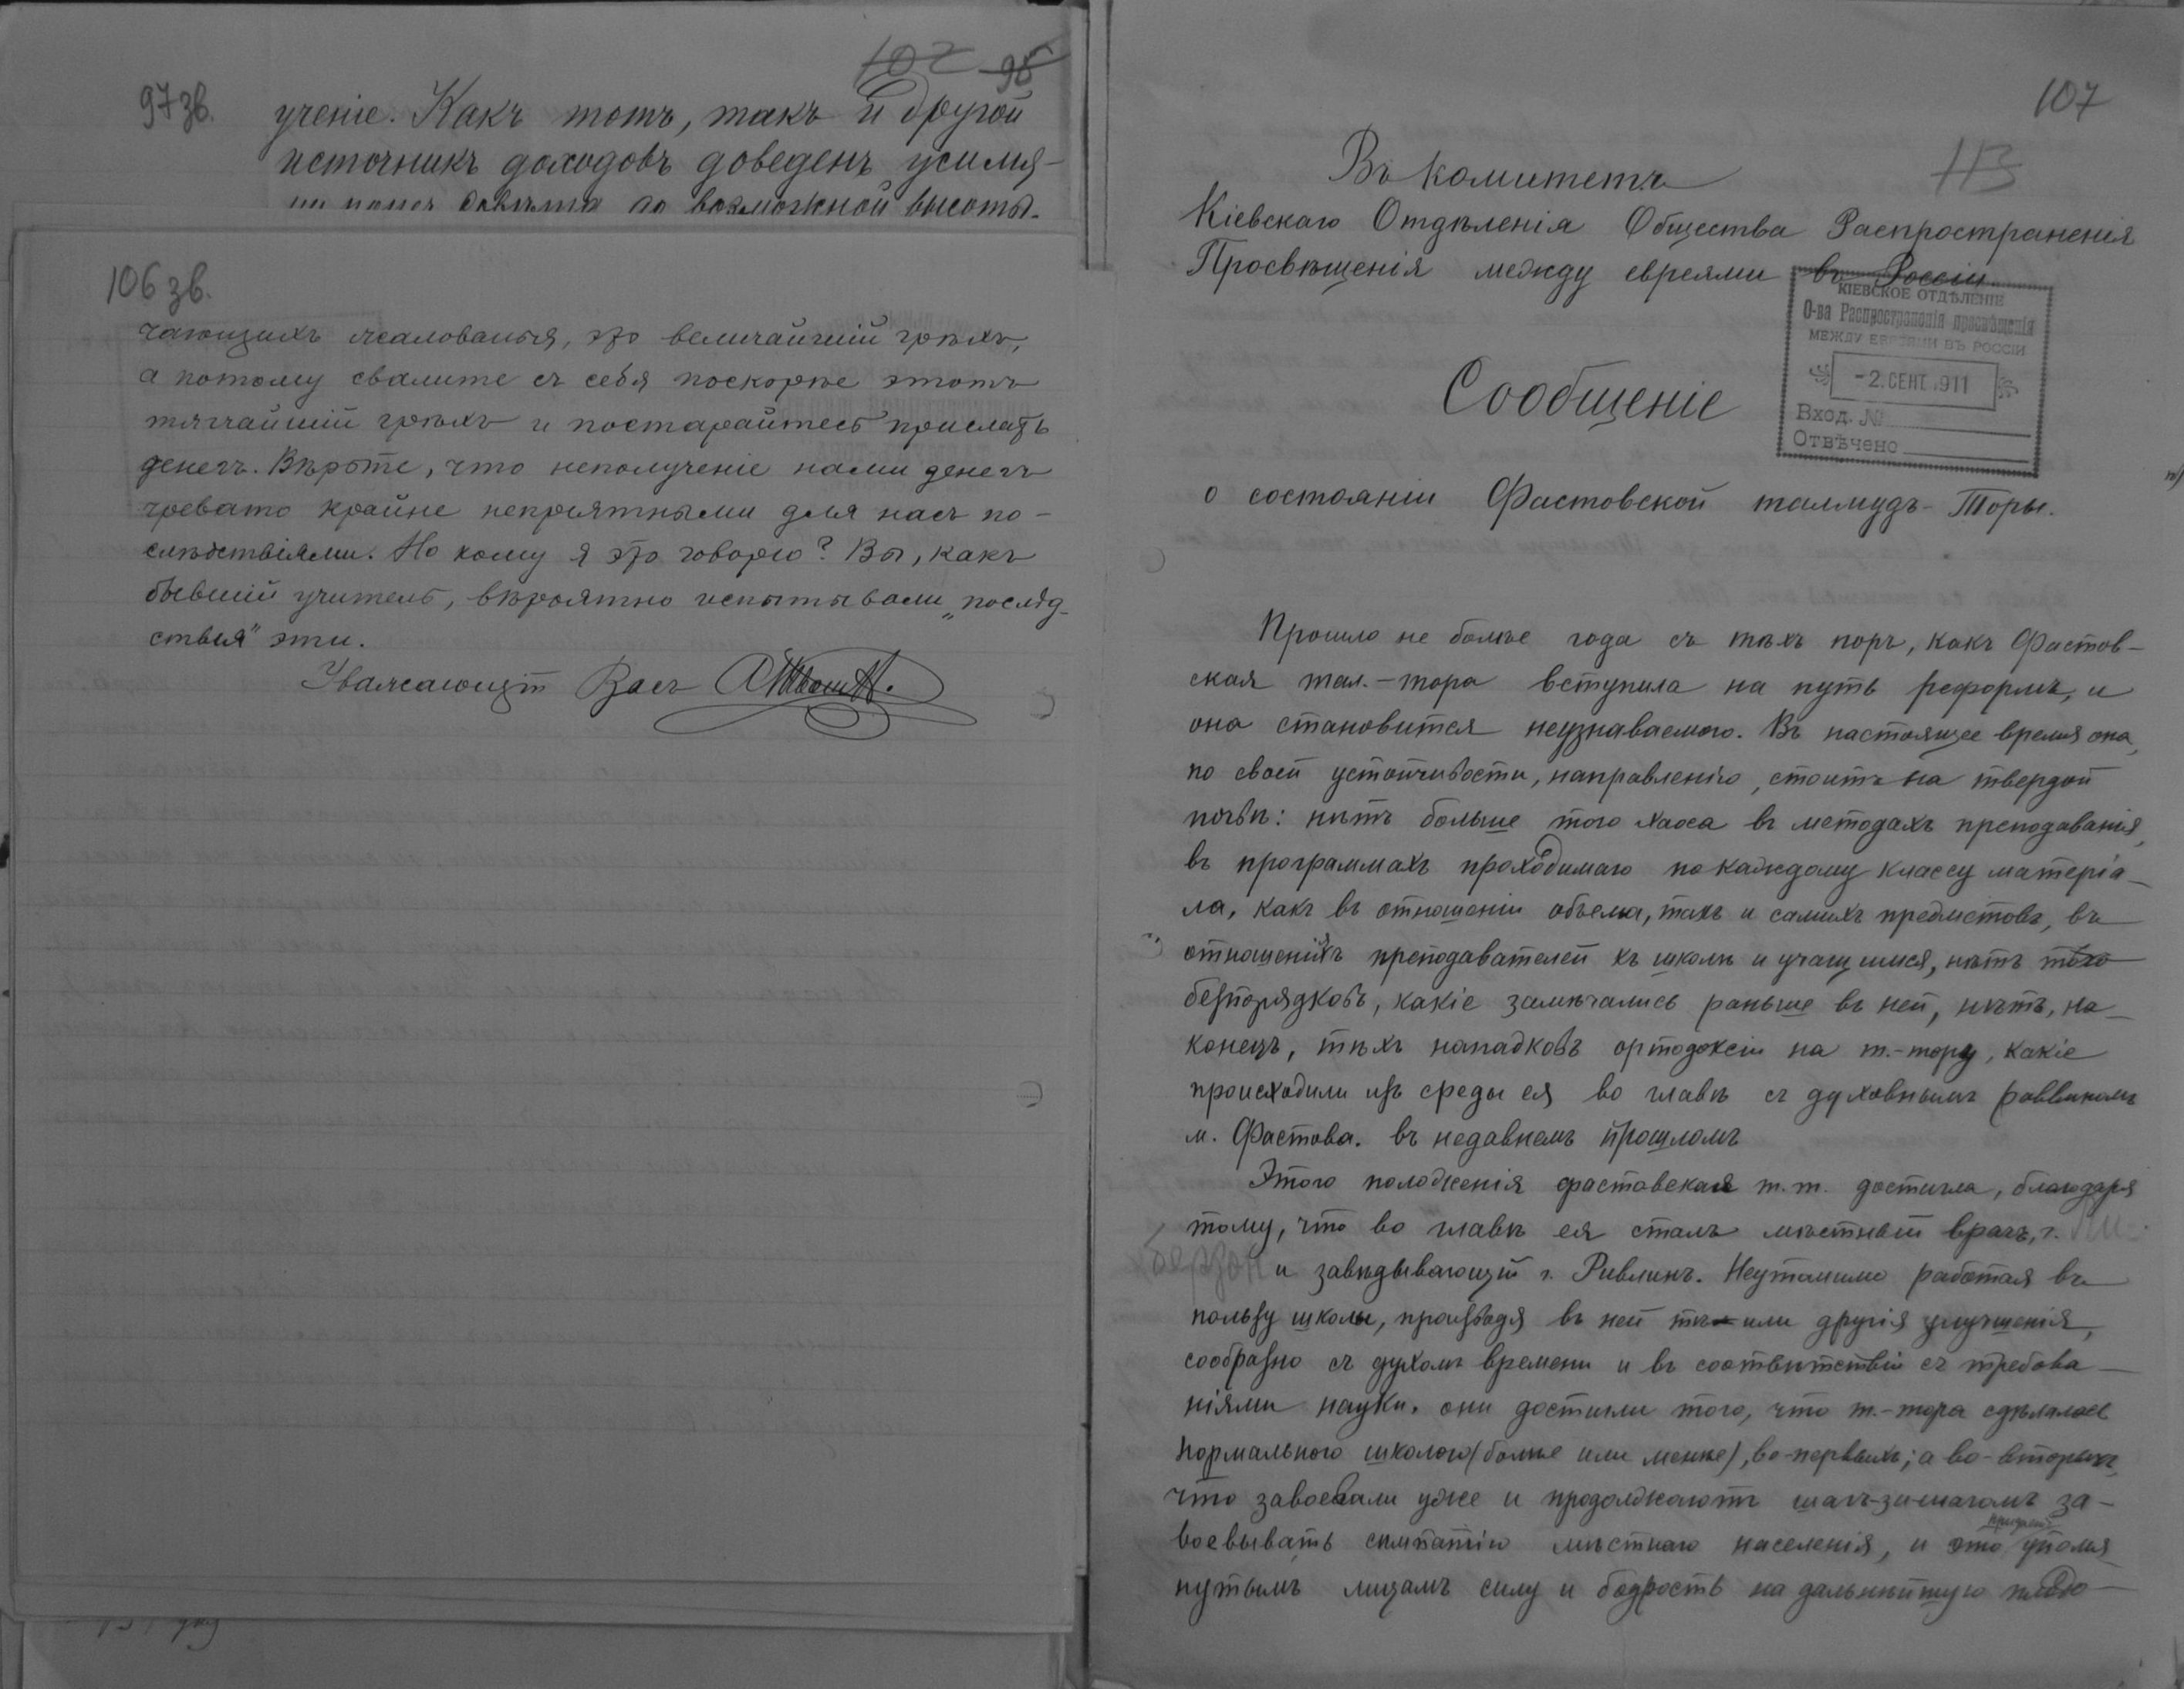 102 98
97 зв.
ученіе. Какъ тотъ, такъ и другой
источникъ доходовъ доведенъ усилія-
до возможной высоты.
106 зв.
чающихъ жалованья, это величайшій грѣхъ,
а потому свалите съ себя поскорѣе этотъ
тягчайшій грѣхъ и постарайтесь прислать
денегъ. Вѣрьте, что неполученіе нами денегъ
чревато крайне непріятными для насъ по-
слѣдствіями. Но кому я это говорю? Вы, какъ
бывшій учитель, вѣроятно испытывали „послѣд-
ствія" эти.
Уважающій Васъ
107
113
Въ комитетъ
Кіевскаго Отдѣленія Общества Распространенія
Просвѣщенія между евреями въ Россіи.
КІЕВСКОЕ ОТДѢЛЕНІЕ
О-ва Распространенія просвѣщенія
МЕЖДУ ЕВРЕЯМИ ВЪ РОССІИ
-2. СЕНТ. 1911
Вход. №
Отвѣчено
Сообщеніе
о состояніи Фастовской талмудъ-Торы.
Прошло не болѣе года съ тѣхъ поръ, какъ Фастов-
ская тал.-тора вступила на путь реформъ, и
она становится неузнаваемою. Въ настоящее время она,
по своей устойчивости, направленію, стоитъ на твердой
почвѣ: нѣтъ больше того хаоса въ методахъ преподаванія,
въ программахъ проходимаго по каждому классу матеріа-
ла, какъ въ отношеніи объема, такъ и самихъ предметовъ, въ
отношеніяхъ преподавателей къ школѣ и учащимся, нѣтъ того
безпорядковъ, какіе замѣчались раньше въ ней, нѣтъ, на-
конецъ, тѣхъ нападковъ ортодоксіи на т.-тору, какіе
происходили изъ среды ея во главѣ съ духовнымъ раввиномъ
м. Фастова. въ недавнемъ прошломъ
Этого положенія фастовская т.т. достигла, благодаря
тому, что во главѣ ея сталъ мѣстный врачъ, г.
и завѣдывающій г. Ривлинъ. Неутомимо работая въ
пользу школы, производя въ ней тѣ или другія улучшенія,
сообразно съ духомъ времени и въ соотвѣтствіи съ требова-
ніями науки, они достигли того, что т.-тора сдѣлалась
нормальною школою (болѣе или менѣе), во-первыхъ; а во-вторыхъ,
что завоевали уже и продолжаютъ шагъ-за-шагомъ за-
воевывать симпатію мѣстнаго населенія, и это придаетъ упомя-
нутымъ лицамъ силу и бодрость на дальнѣйшую плодо-